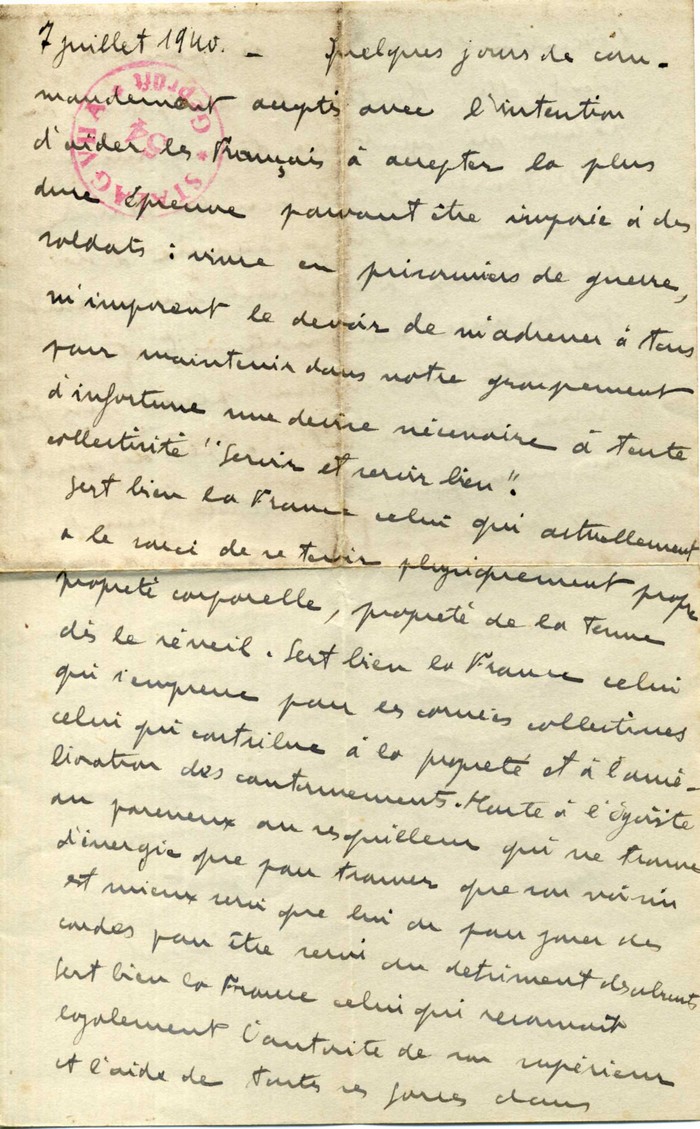 7 juillet 1940. — Quelques jours de com-
mandement acceptés avec l'intention
d'aider les Français à accepter la plus
dure épreuve pouvant être imposée à des
soldats : vivre en prisonniers de guerre,
m'imposent le devoir de m'adresser à tous
pour maintenir dans notre groupement
d'infortune une devise nécessaire à toute
collectivité "Servir et servir bien".
Sert bien la France celui qui actuellement
a le souci de se tenir physiquement propre
propreté corporelle, propreté de la tenue
dès le réveil. Sert bien la France celui
qui s'empresse pour les corvées collectives
celui qui contribue à la propreté et à l'amé-
lioration des cantonnements. Honte à l'égoïste
au paresseux au resquilleur qui ne trouve
d'énergie que pour trouver que son voisin
est mieux servi que lui ou pour jouer des
coudes pour être servi au détriment des absents
Sert bien la France celui qui reconnait
loyalement l'autorité de son supérieur
et l'aide de toutes ses forces dans
STALAG VIII A
54
Geprüft